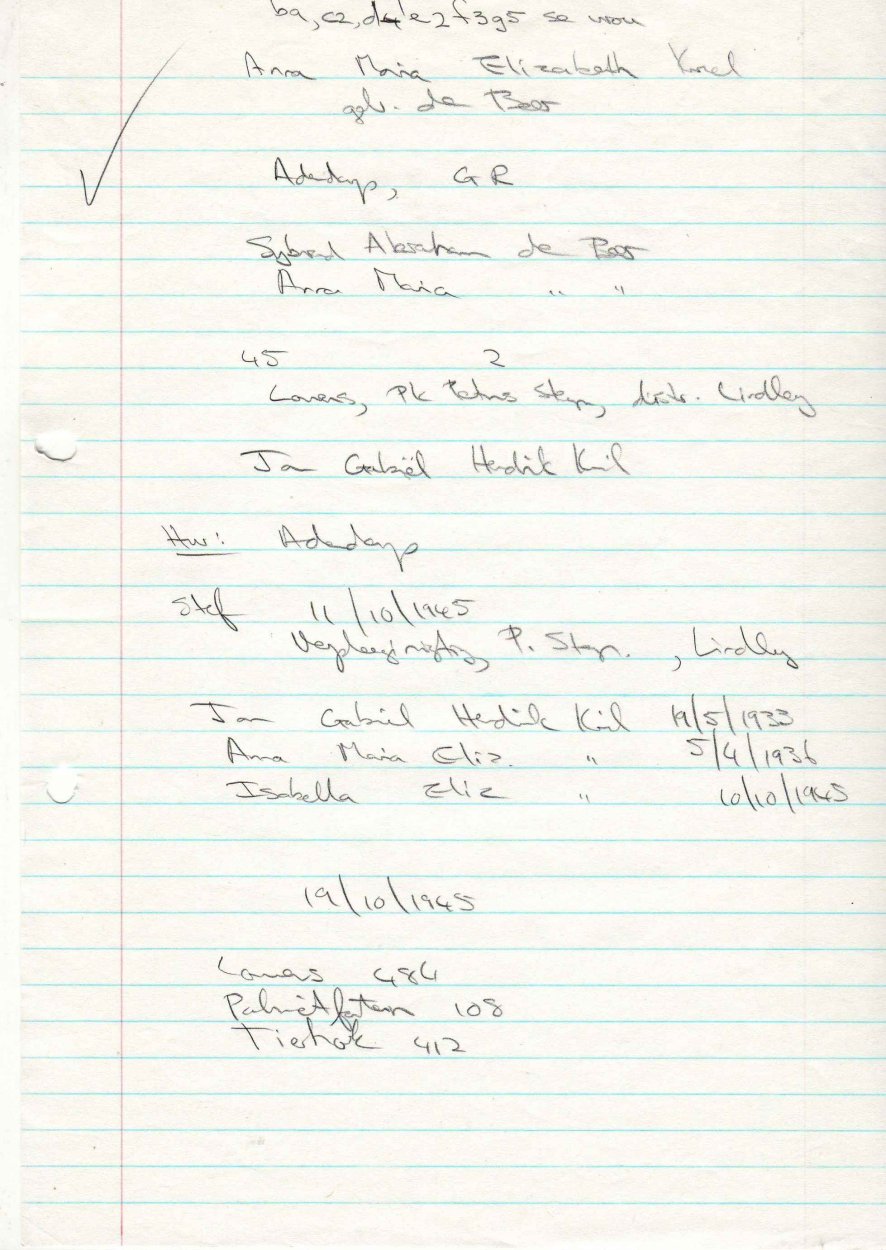 b9,c2,d4 e2 f3 g5 se vrou
Anna Maria Elizabeth
geb. de Beer
Adendorp, GR
Sybrand Abraham de Beer
Anna Maria " "
45 2
Lowers, Pk Petrus Steyn, distr. Lindley
Jan Gabriël Hendrik
Hw: Adendorp
Sterf 11/10/1945
Verpleeginrigting, P. Steyn. , Lindley
Jan Gabriël Hendrik 19/5/1933
Anna Maria Eliz. " 5/4/1936
Isabella Eliz " 10/10/1945
19/10/1945
Lowers 484
Palmietfontein 108
Tierhoek 412